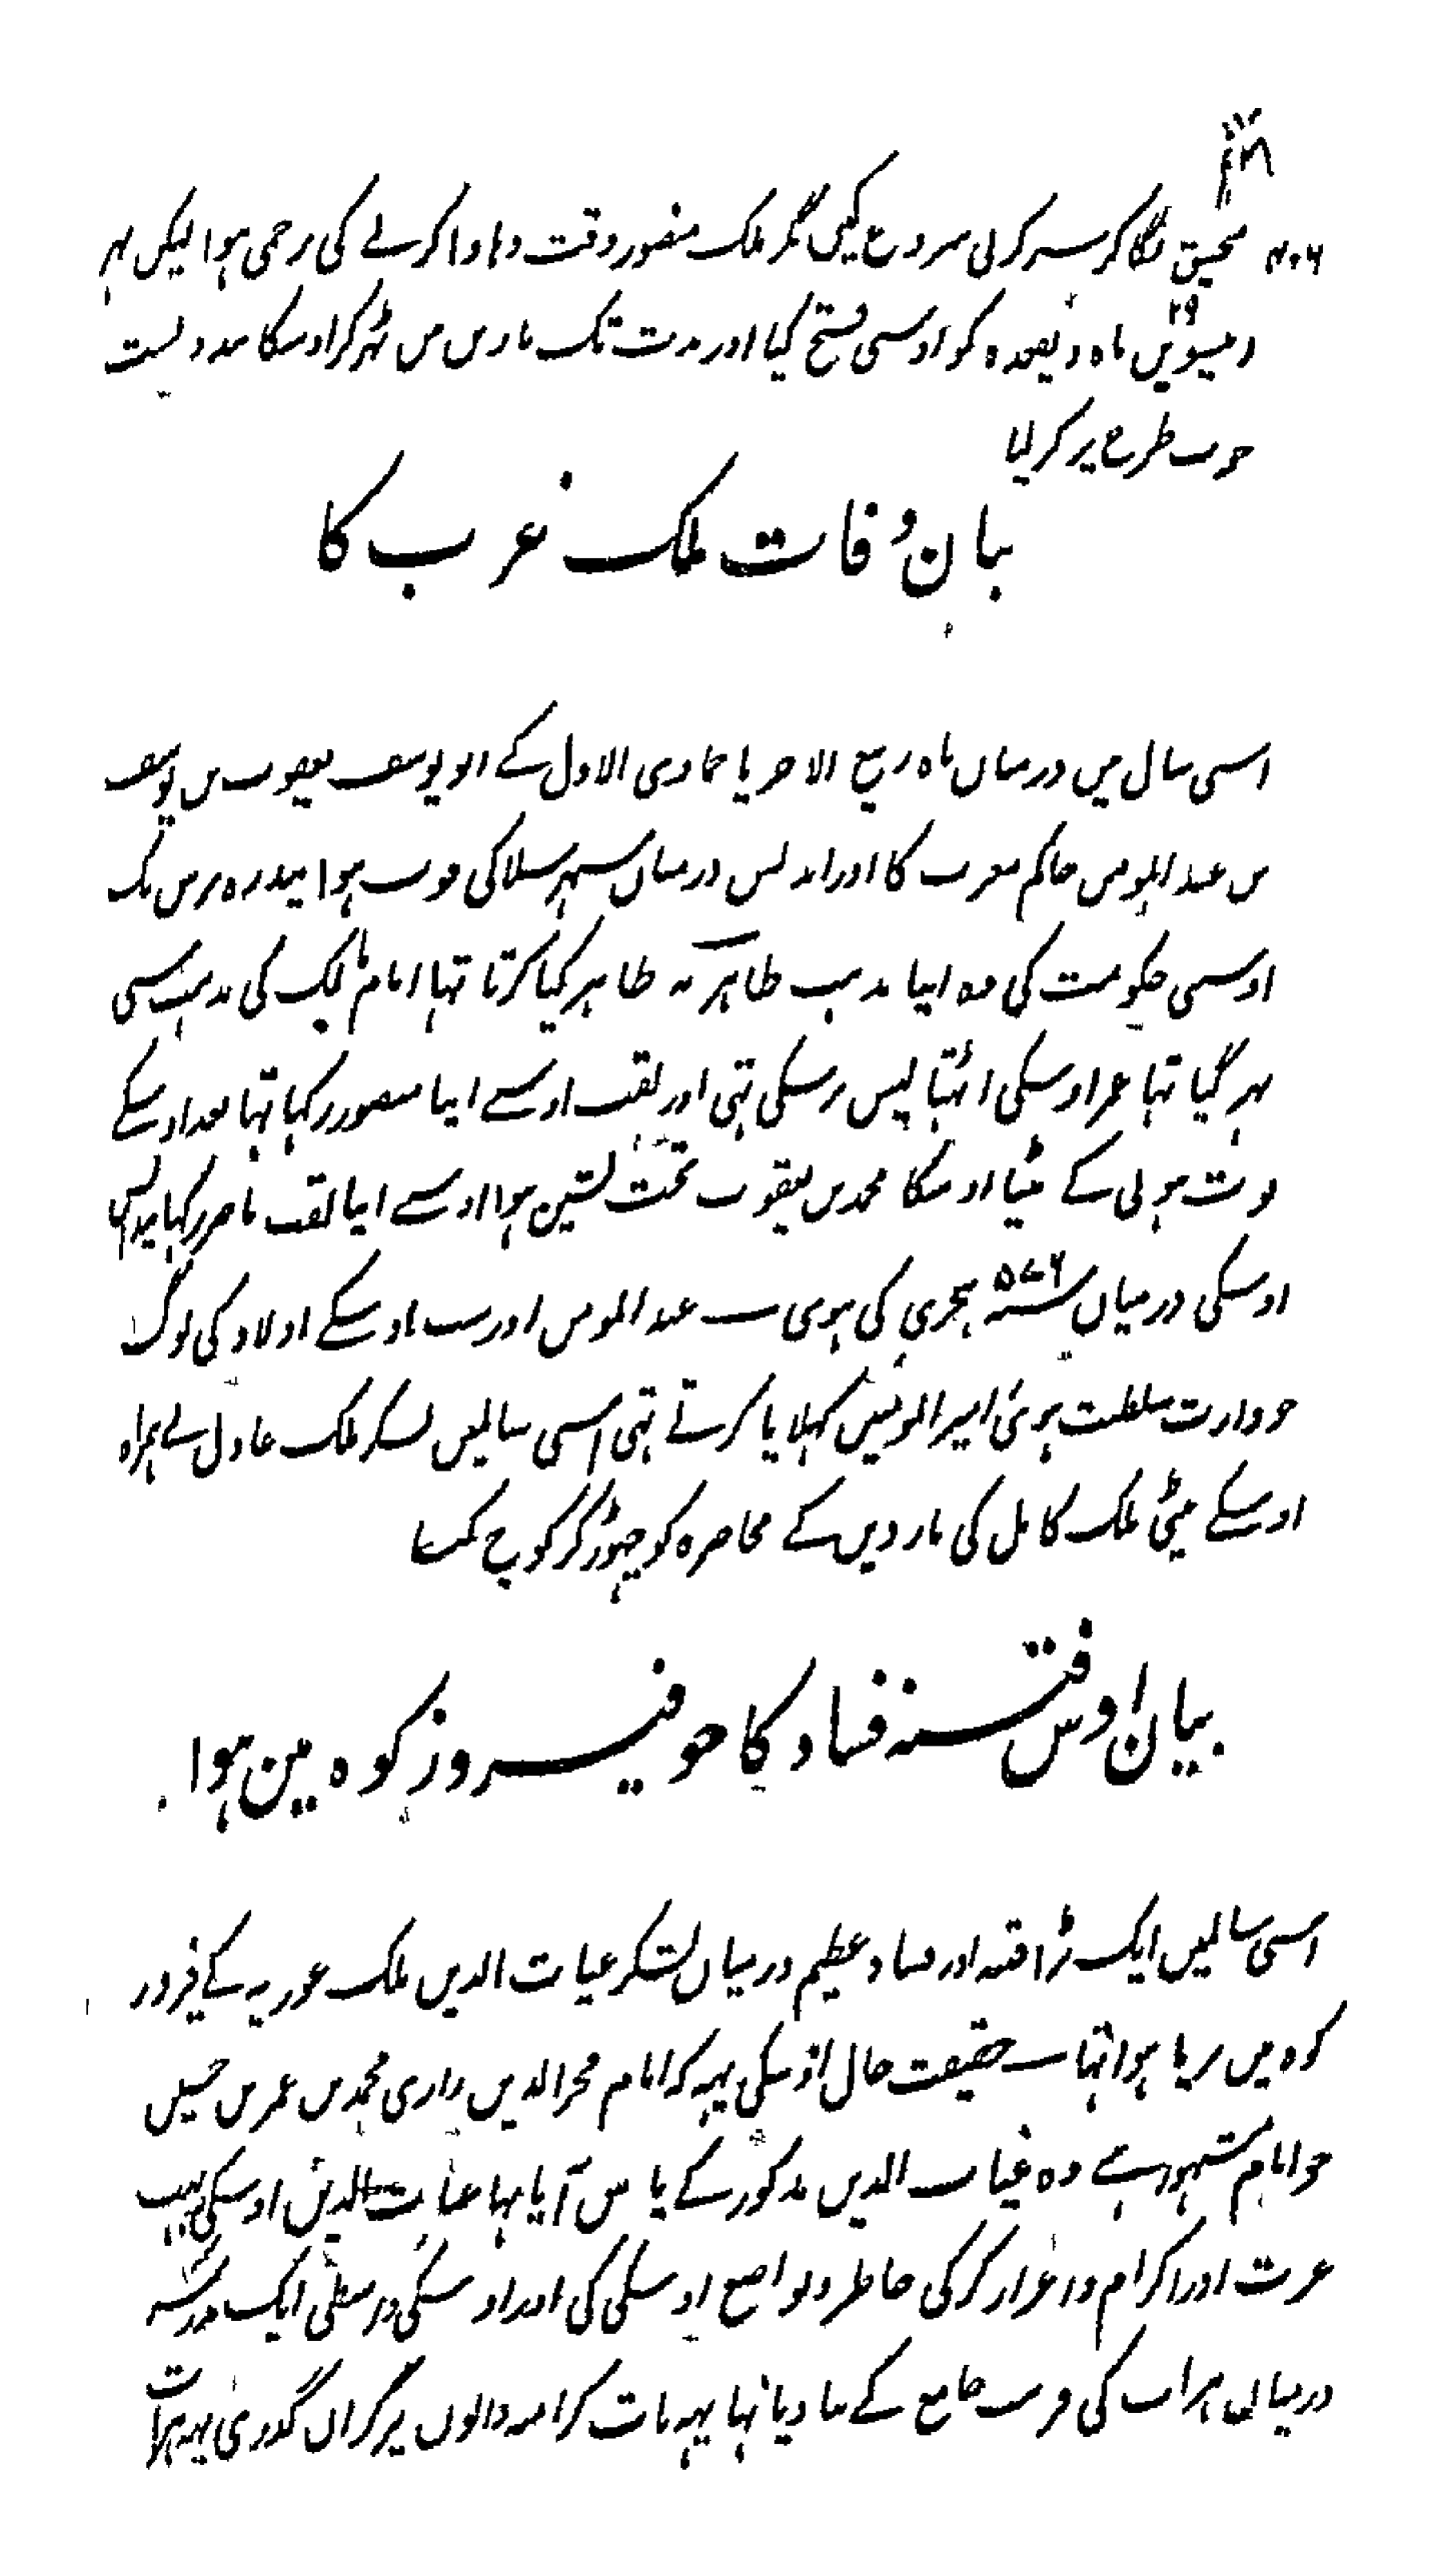 منجنیق لگا کر سر کرنی شروع کیں مگر ملک منصور وقت دہاوا کرنے کی زخمی ہوا لیکن پہر
۲۹
ویں ماہ ذیقعدہ کو اوسی فتح کیا اور مدت تک بارین میں ٹہر کر اوسکا بندوبست
خوب طرح پر کر لیا
بیان وفات ملک غرب کا
اسی سال میں درمیان ماہ ربیع الاخر یا جمادی الاول کے ابو یوسف یعقوب بن یوسف
بن عبد المومن حاکم مغرب کا اور اندلس درمیان شہر سلا کی فوت ہوا پندرہ برس تک
اوسی حکومت کی وہ اپنا مذہب ظاہریہ ظاہر کیا کرتا تہا امام مالک کی مذہب سی
پہر گیا تہا عمر اوسکی اڑتالیس برسکی تہی اور لقب اوسے اپنا منصور رکہا تہا بعد اوسکے
فوت ہونی کے بیٹا اوسکا محمد بن یعقوب تخت نشین ہوا اوسے اپنا لقب ناصر رکہا پیدایش
اوسکی درمیان سنہ ۵۷۶ ہجری کی ہوی عبد المومن اور سب اوسکے اولاد کی لوگ
جو وارث سلطنت ہوئ امیر المومنین کہلایا کرتے تہی اسی سالمیں لشکر ملک عادل نے ہمراہ
اوسکے بیٹی ملک کامل کی ماردین کے محاصرہ کو چہوڑ کر کوچ کیا
بیان اوس فتنہ فساد کا جو فیروز کوہ مین ہوا
اسی سالمیں ایک بڑا فتنہ اور فساد عظیم درمیان لشکر غیاث الدین ملک غوریہ کے فیروز
کوہ میں برپا ہوا تہا حقیقت حال اوسکی یہہ کہ امام فخر الدین رازی محمد بن عمر بن حسین
جو امام مشہور ہے وہ غیاث الدین مذکور کے پاس آیا تہا غیاث الدین اوسکی بہت
عزت اور اکرام و اعزاز کر کی خاطر و تواضع اوسکی کی اور اوسکی واسطی ایک مدرسہ
درمیان ہرات کی قریب جامع کے بنا دیا تہا یہہ بات کرامیہ والوں پر گراں گذری یہہ